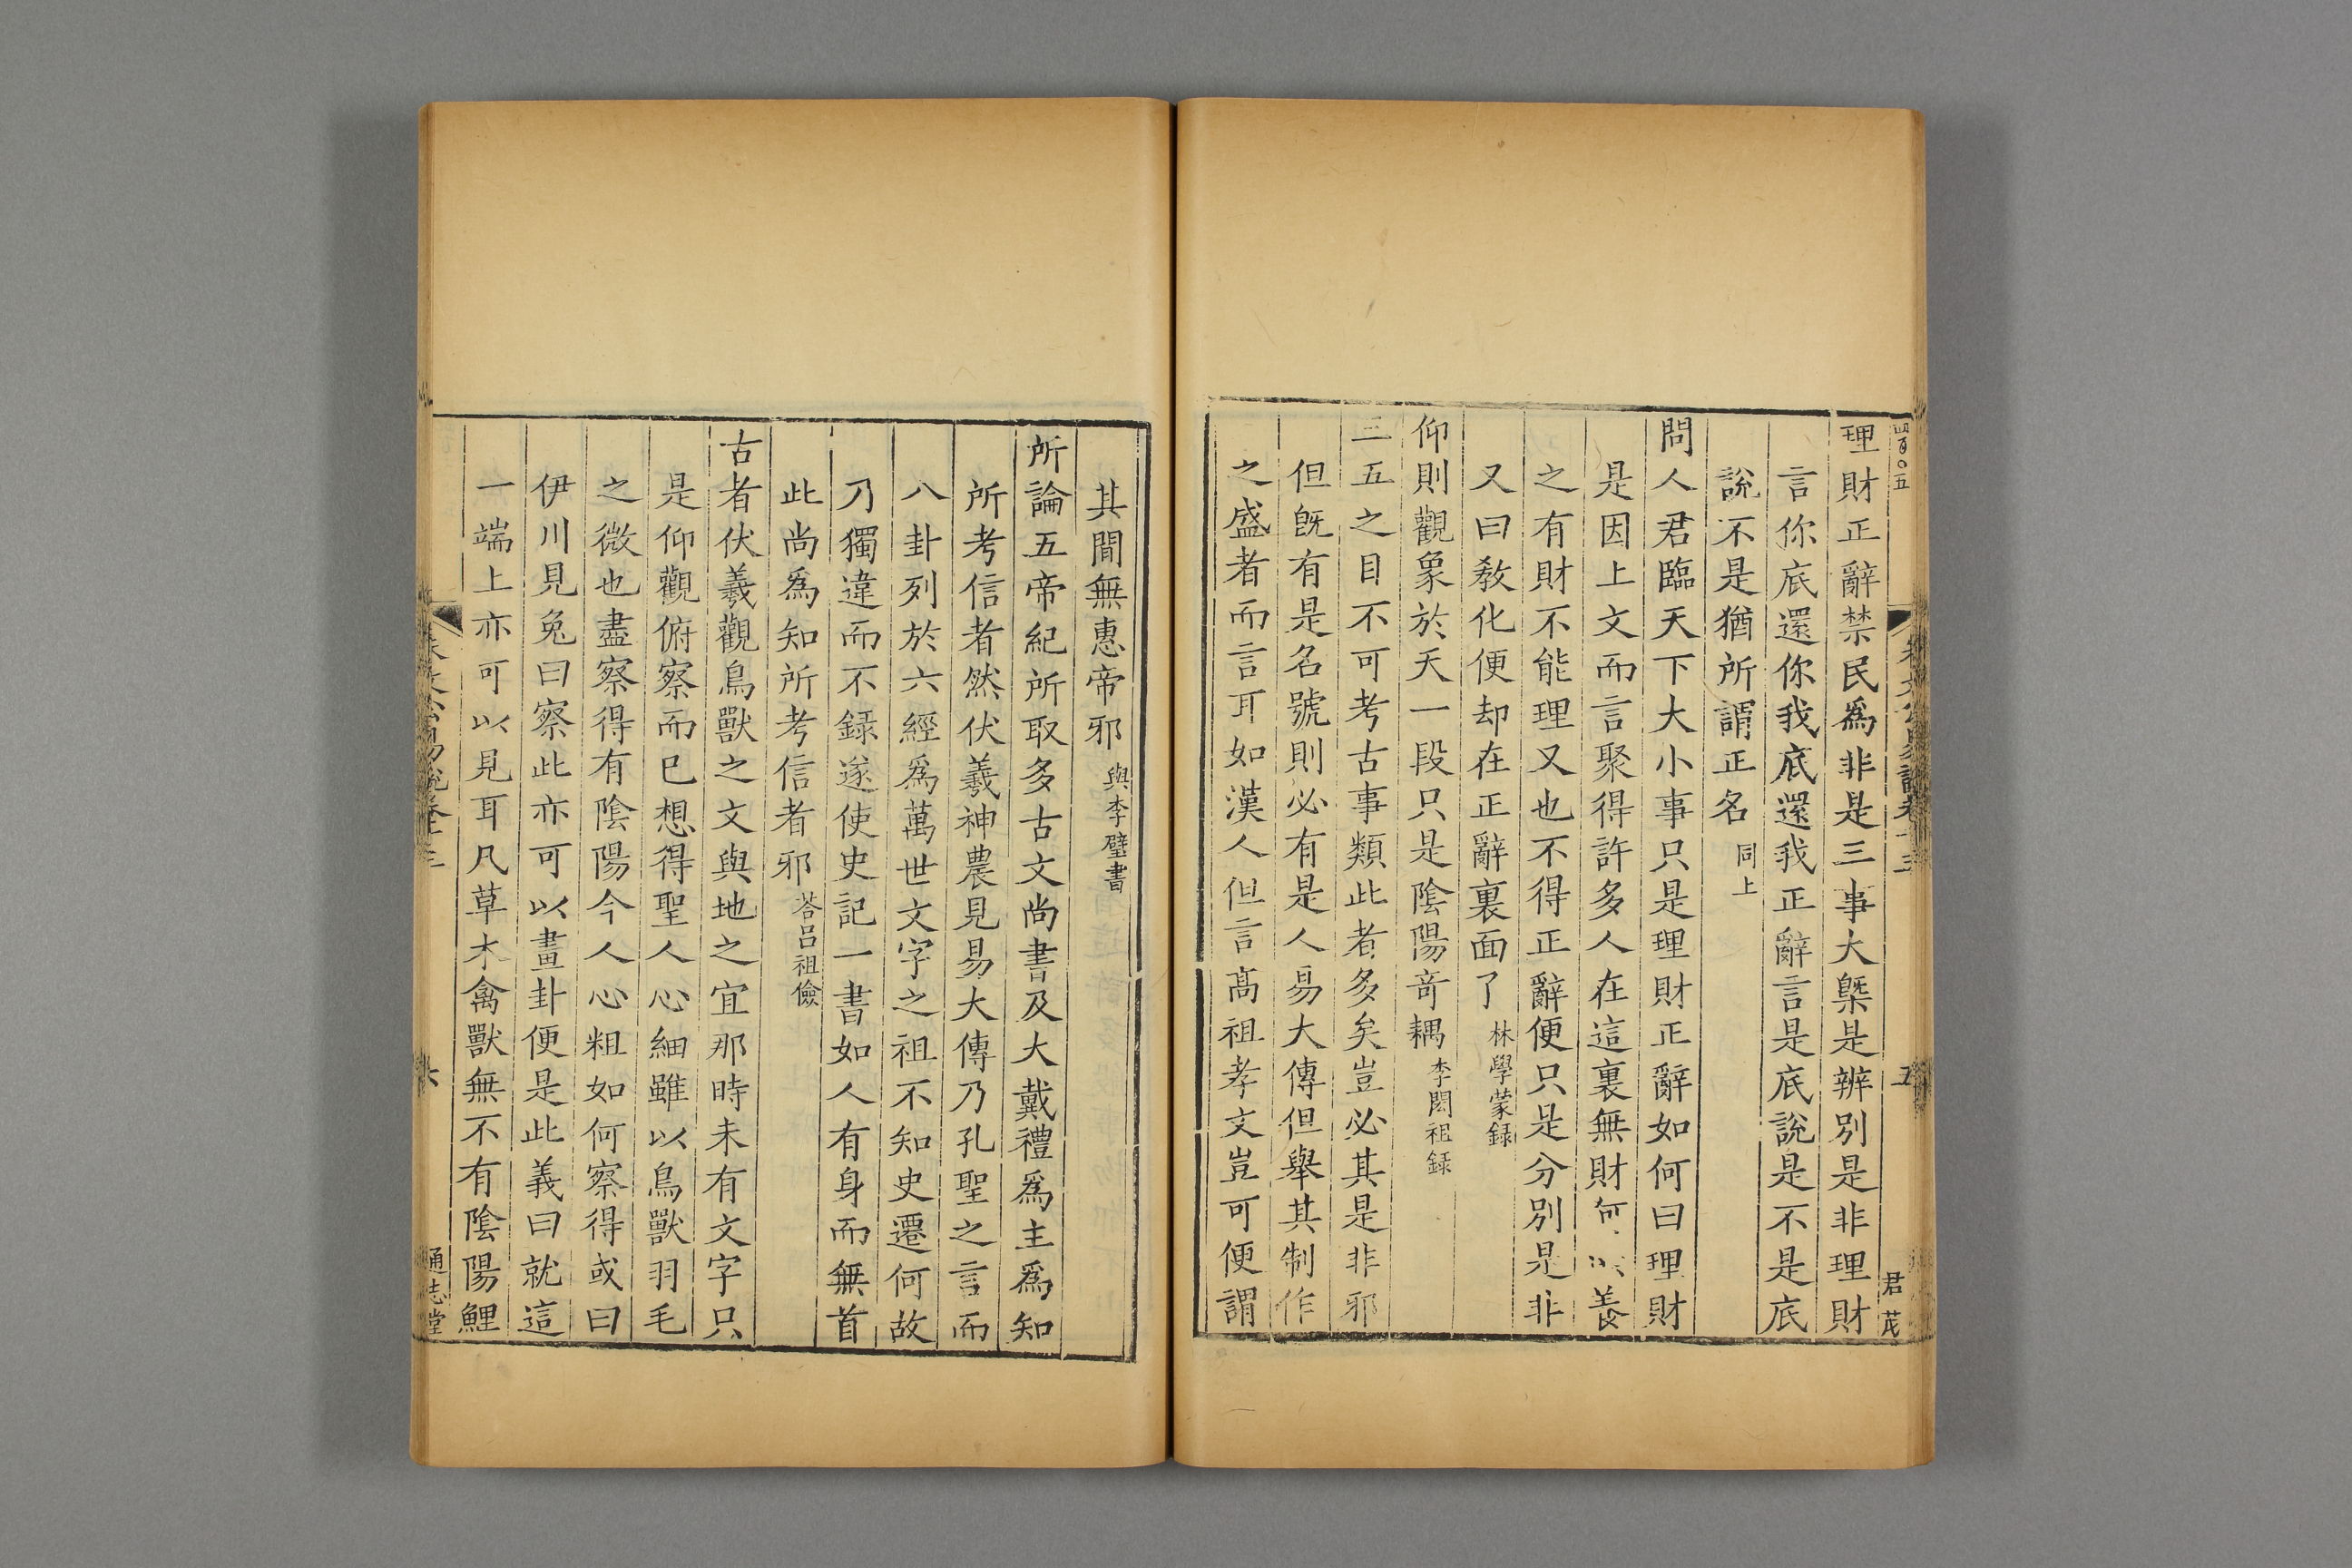 四百〇五
君茂
理財正辭禁民爲非是三事大槩是辨別是非理財
言你底還你我底還我正辭言是底說是不是底
說不是猶所謂正名同上
問人君臨天下大小事只是理財正辭如何曰理財
是因上文而言聚得許多人在這裏無財何以養
之有財不能理又也不得正辭便只是分別是非
又曰敎化便却在正辭裏面了林學蒙録
仰則觀象於天一段只是陰陽竒耦李閎祖録
三五之目不可考古事類此者多矣豈必其是非邪
但旣有是名號則必有是人易大傳但舉其制作
之盛者而言耳如漢人但言髙祖孝文豈可便謂
其間無惠帝邪與李璧書
所論五帝紀所取多古文尚書及大戴禮爲主爲知
所考信者然伏羲神農見易大傳乃孔聖之言而
八卦列於六經爲萬世文字之祖不知史遷何故
乃獨違而不録遂使史記一書如人有身而無首
此尚爲知所考信者邪荅呂祖儉
古者伏羲觀鳥獸之文與地之宜那時未有文字只
是仰觀俯察而已想得聖人心細雖以鳥獸羽毛
之微也盡察得有陰陽今人心粗如何察得或曰
伊川見兔曰察此亦可以畫卦便是此義曰就這
一端上亦可以見耳凡草木禽獸無不有陰陽鯉
通志堂